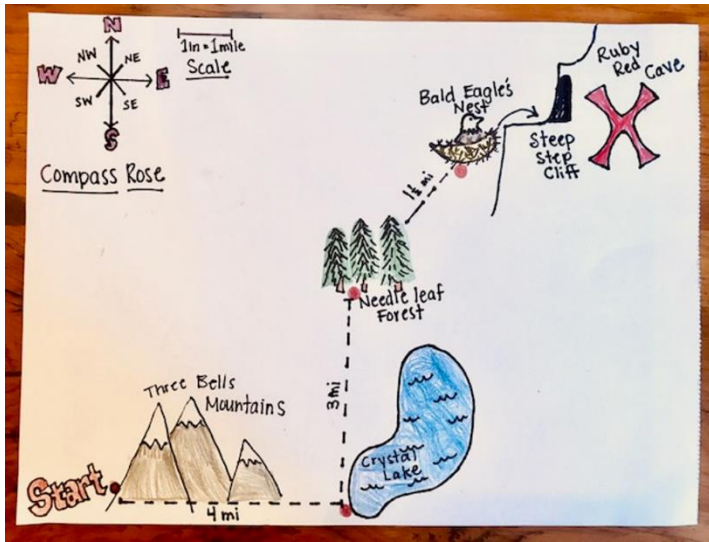 N
NW NE
W E
SW SE
S
Compass Rose
1in = 1mile
Scale
Ruby
Red Cave
Bald Eagle's
Nest
Steep
Step
Cliff
1½ mi
Needle leaf
Forest
3mi
Three Bells
Mountains
Crystal
Lake
Start
4 mi